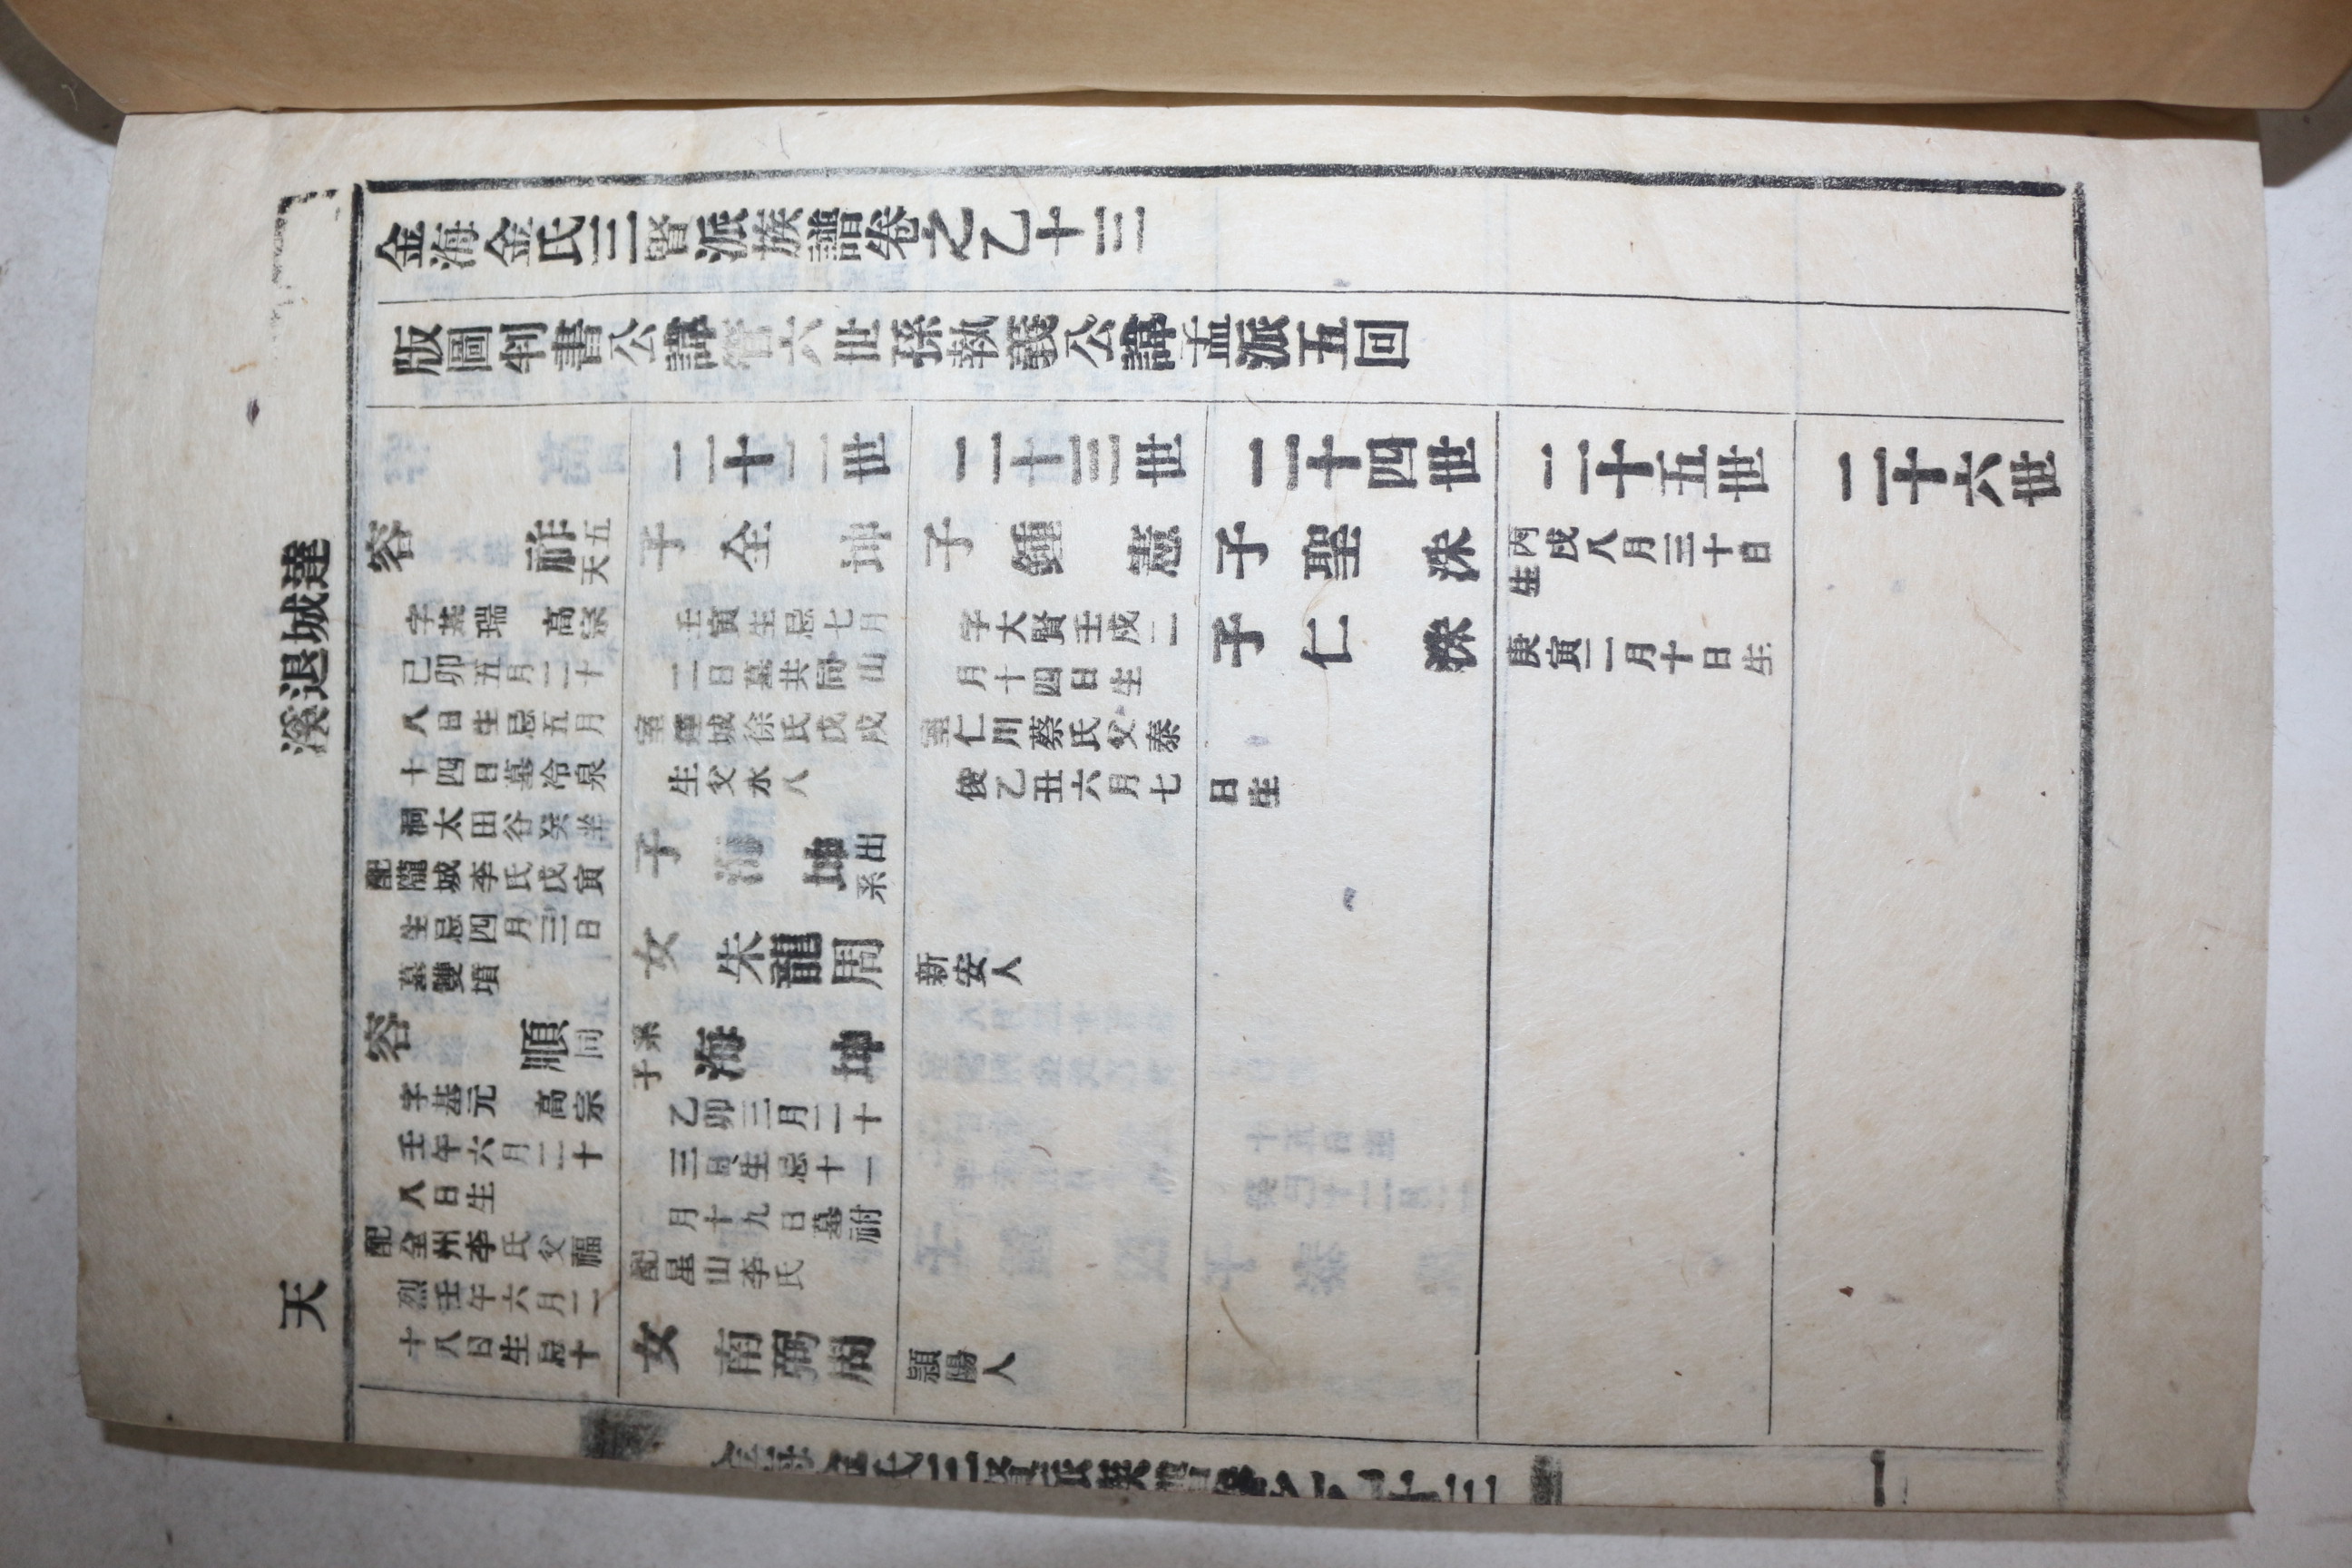 金海金氏三賢派族譜卷之乙十三
版圖判書公諱管六世孫執義公諱孟派五回
達城退溪
天
容祚
五天
字基瑞 高宗
己卯五月二十
八日生忌五月
十四日墓冷泉
洞太田谷癸坐
配隴城李氏戊寅
生忌四月三日
墓雙墳
容順同
字基元 高宗
壬午六月二十
八日生
配全州李氏父福
烈壬午六月二
十八日生忌十
二十二世
子全坤
壬寅生忌七月
二日墓共同山
室達城徐氏戊戌
生父水八
子海坤
出系
女朱龍周
系子
海坤
乙卯三月二十
三日生忌十一
月十九日墓祔
配星山李氏
女南弼周
二十三世
子鍾憲
字大賢壬戌二
月十四日生
室仁川蔡氏父泰
俊乙丑六月七
新安人
潁陽人
二十四世
子聖洙
子仁洙
日生
二十五世
丙戌八月三十日
生
庚寅二月十日生
二十六世
金海金氏三賢派族譜卷之乙十三
一